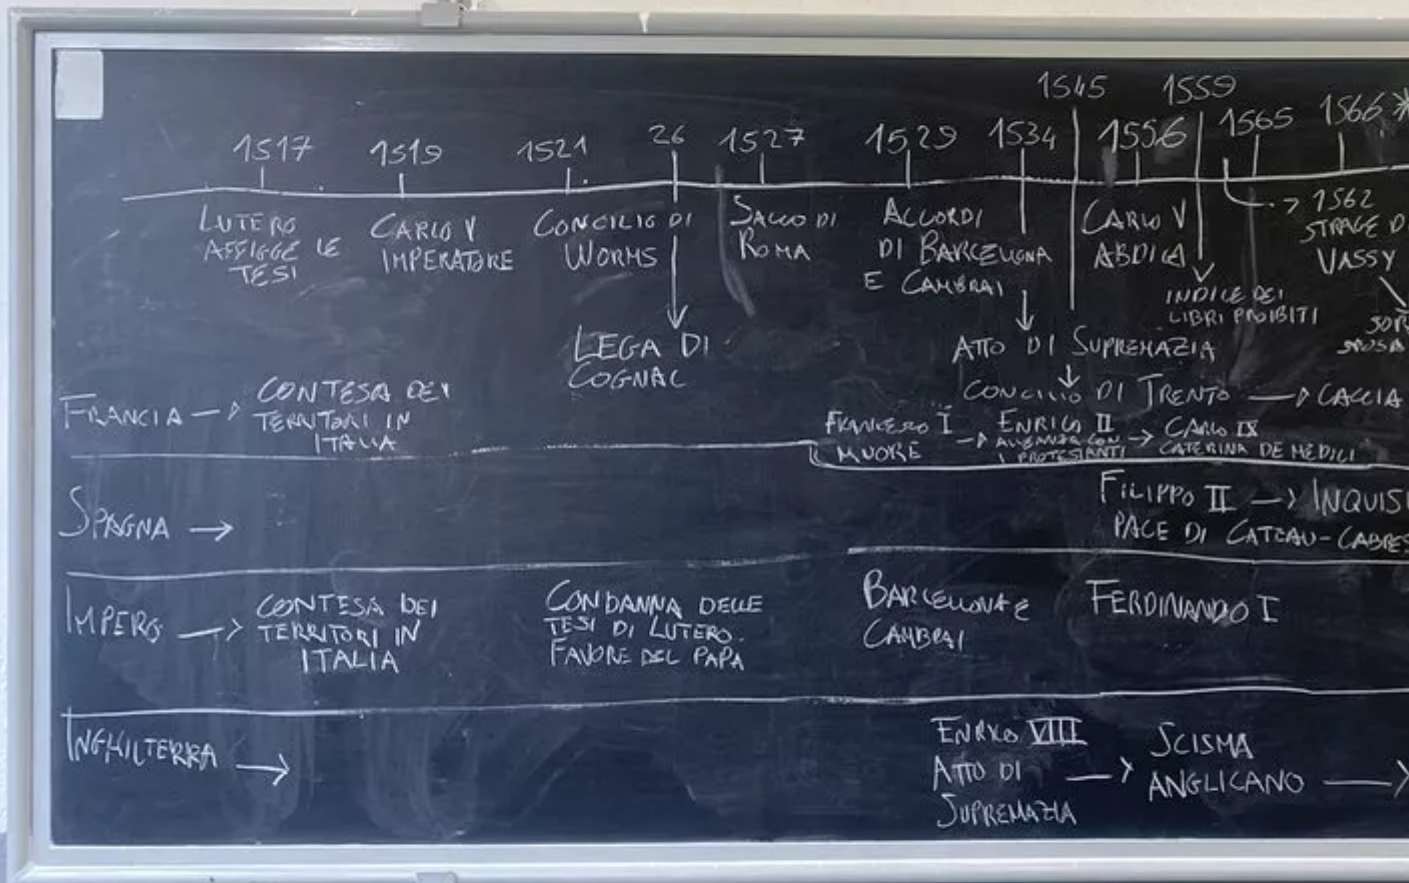 1545 1559
1517 1519 1521 26 1527 1529 1534 1556 1565 1566*
LUTERO
AFFIGGE LE
TESI
CARLO V
IMPERATORE
CONCILIO DI
WORMS
LEGA DI
COGNAC
SACCO DI
ROMA
ACCORDI
DI BARCELLONA
E CAMBRAI
ATTO DI SUPREMAZIA
CONCILIO DI TRENTO → CACCIA
CARLO V
ABDICA
INDICE DEI
LIBRI PROIBITI
→ 1562
STRAGE D
VASSY
FRANCIA → CONTESA DEI
TERRITORI IN
ITALIA
FRANCESCO I
MUORE
→ ENRICO II
ALLEANZA CON
I PROTESTANTI
→ CARLO IX
CATERINA DE MEDICI
SPAGNA →
FILIPPO II → INQUISI
PACE DI CATEAU-CABRES
IMPERO → CONTESA DEI
TERRITORI IN
ITALIA
CONDANNA DELLE
TESI DI LUTERO.
FAVORE DEL PAPA
BARCELLONA E
CAMBRAI
FERDINANDO I
INGHILTERRA →
ENRICO VIII
ATTO DI
SUPREMAZIA
→ SCISMA
ANGLICANO →